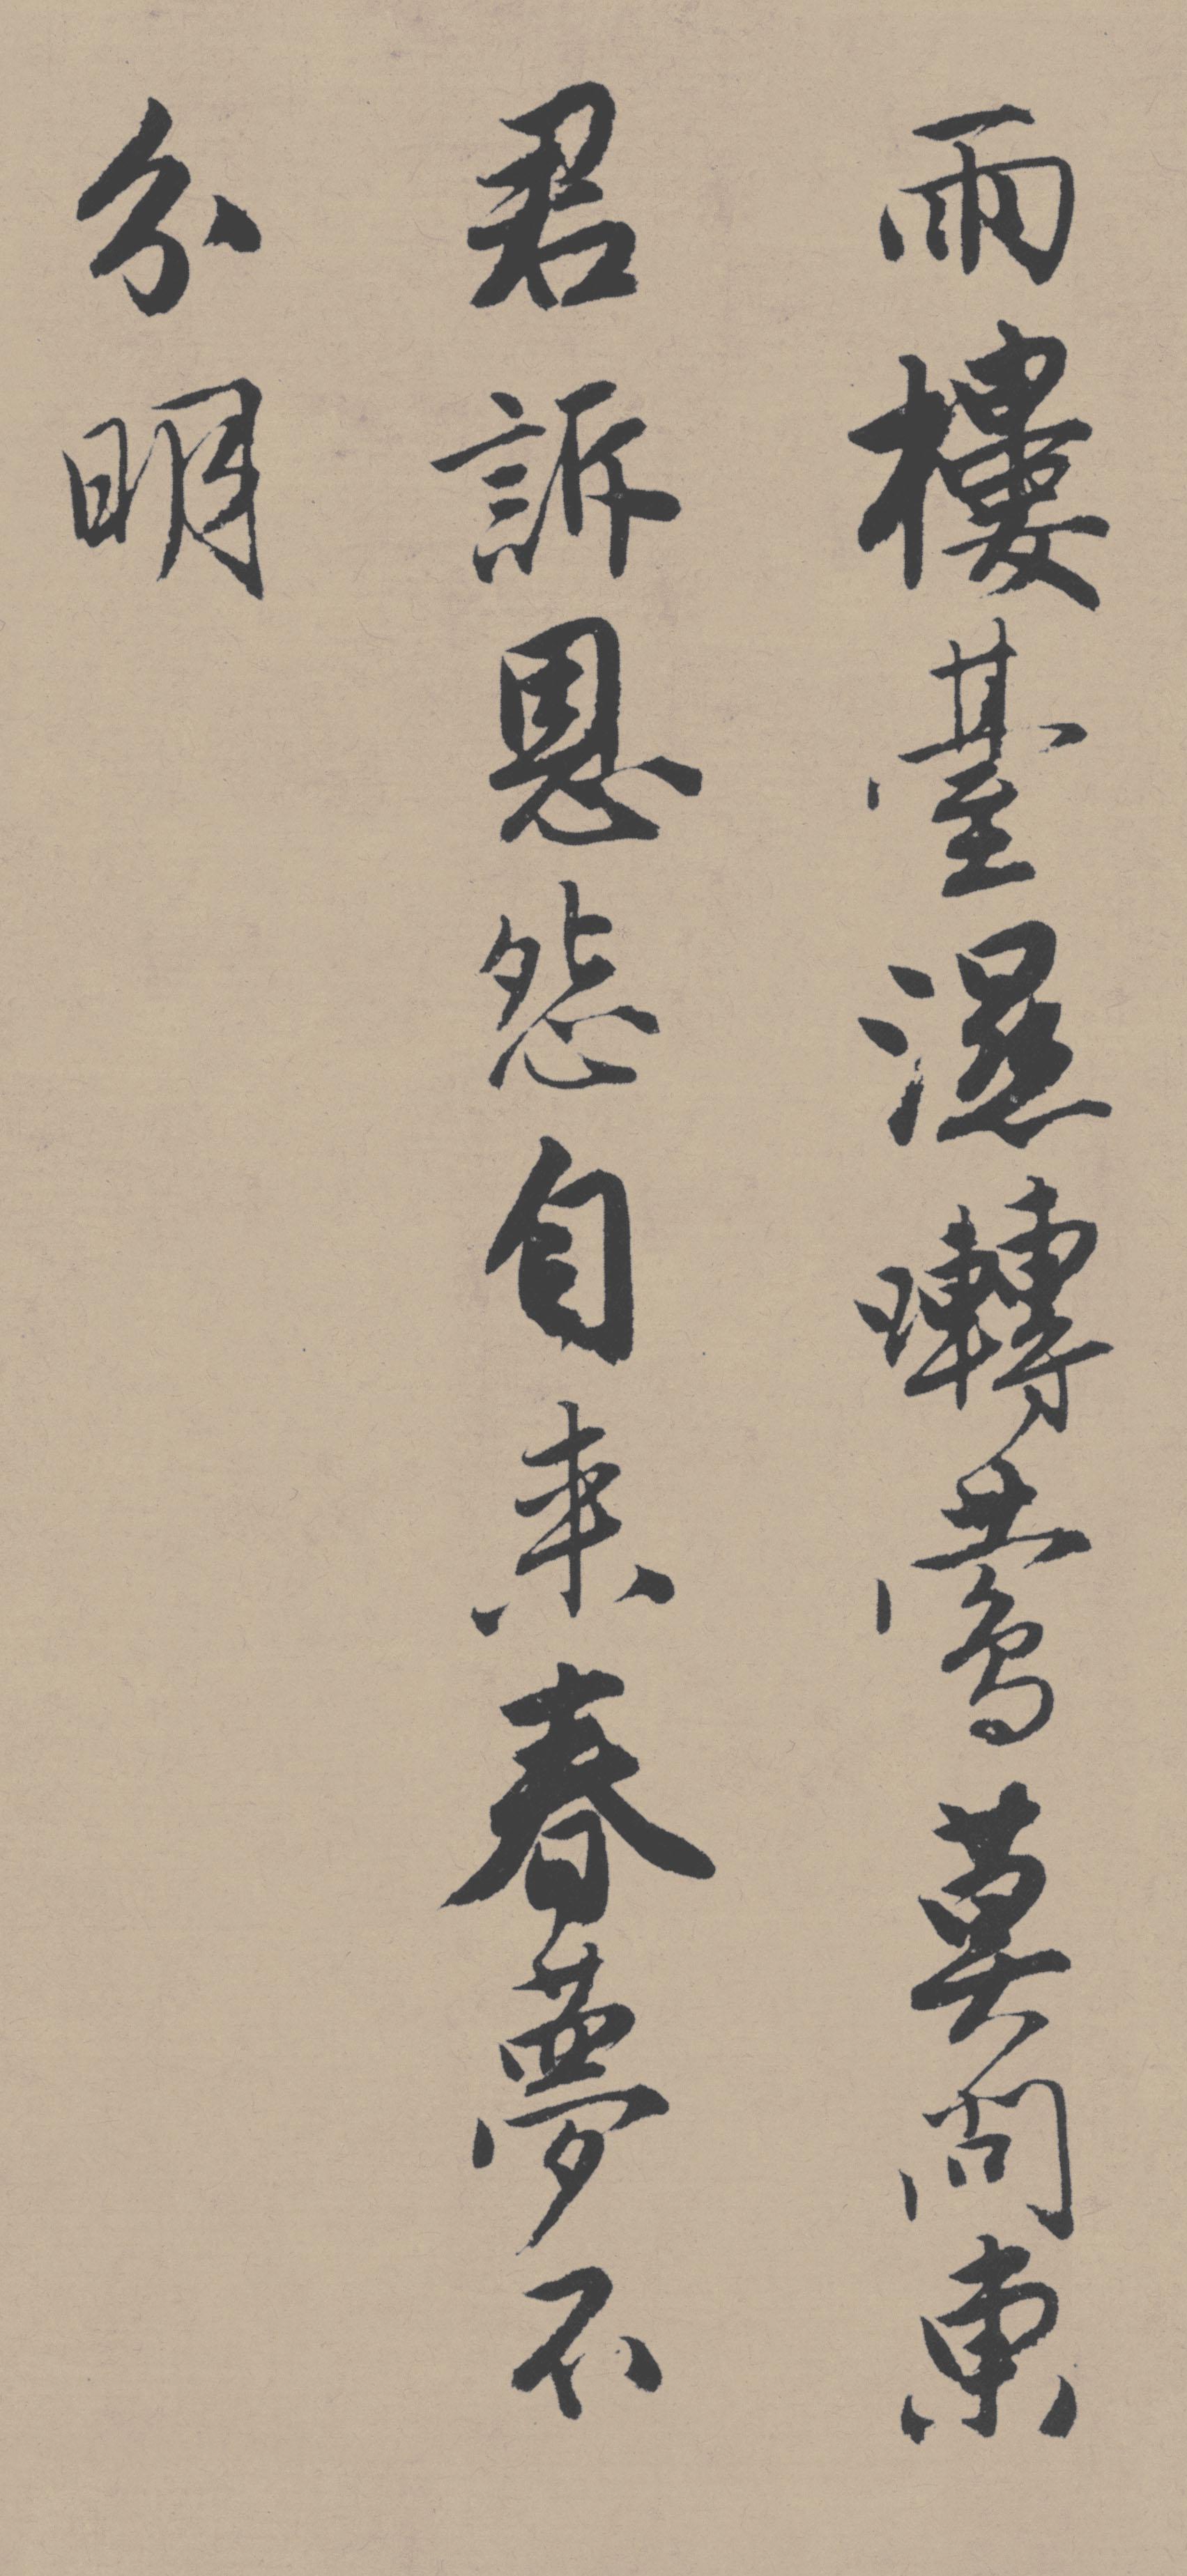 雨樓臺濕囀鶯莫問東
君訴恩怨自来春夢不
分明